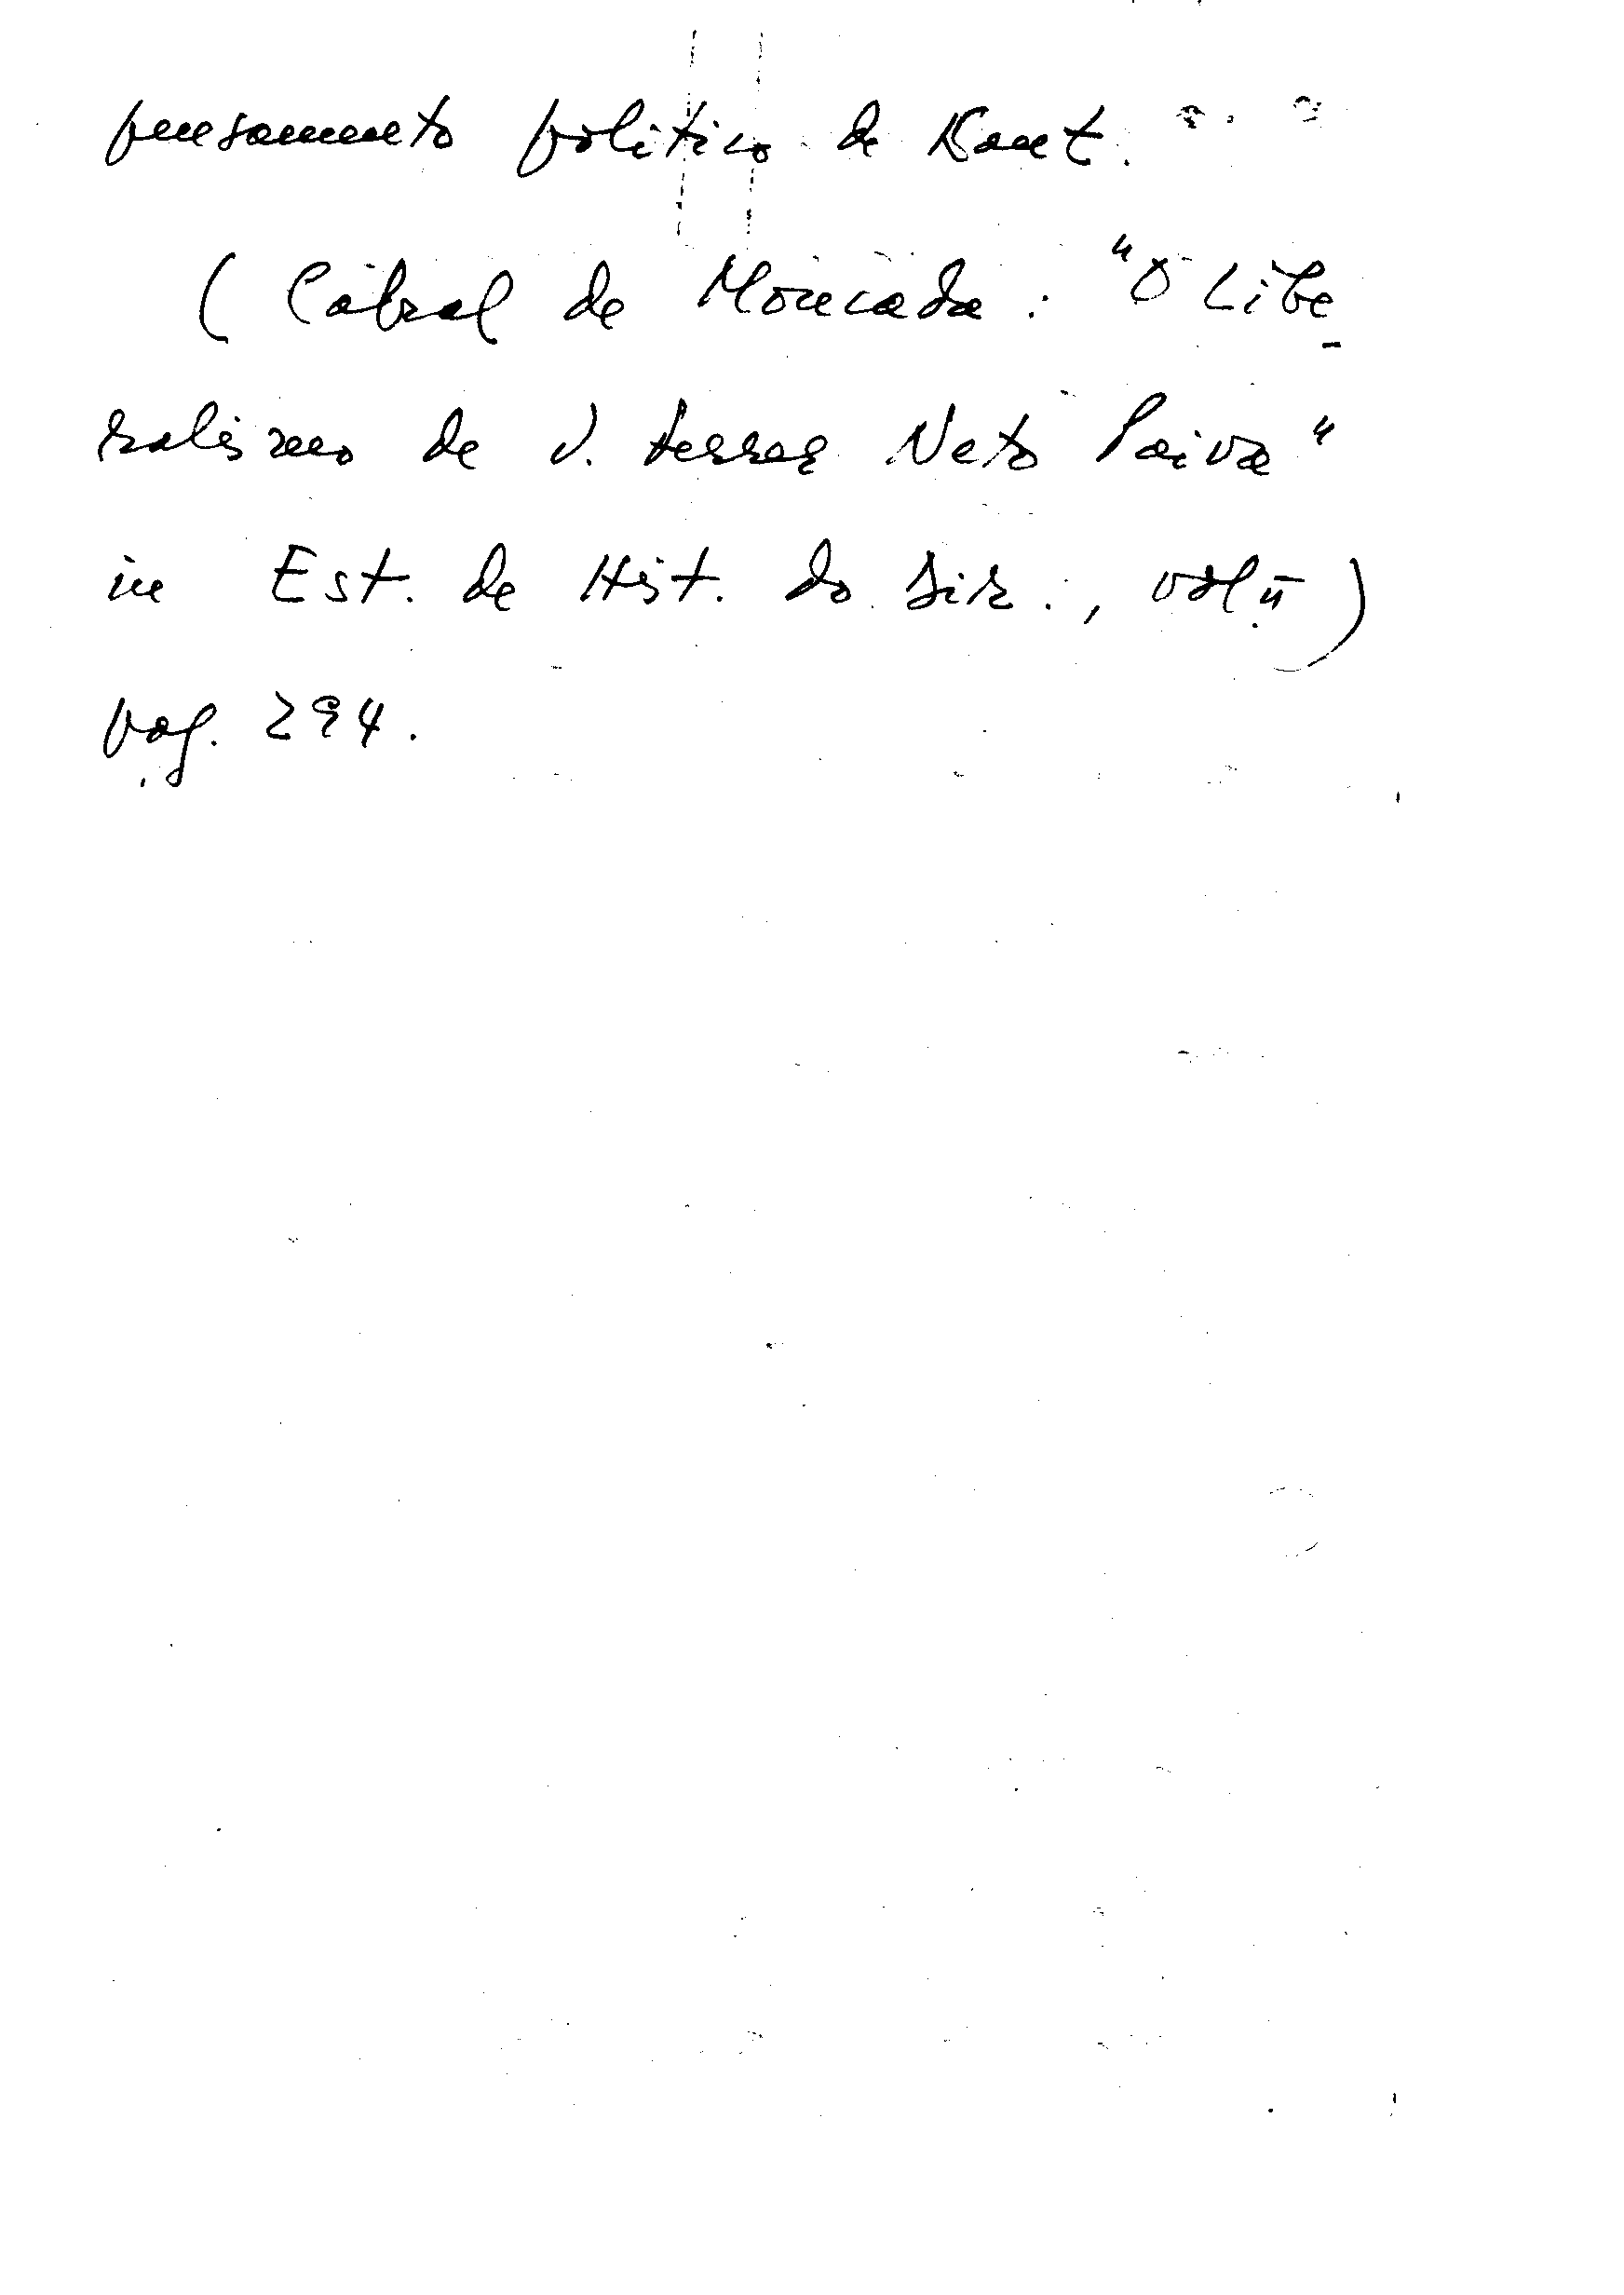 pensamento politico de Kant.
(Cabral de Moncada: "O Libe-
ralismo de V. Ferrer Neto Paiva"
in Est. de Hist. do Dir., vol. II)
pag. 294.